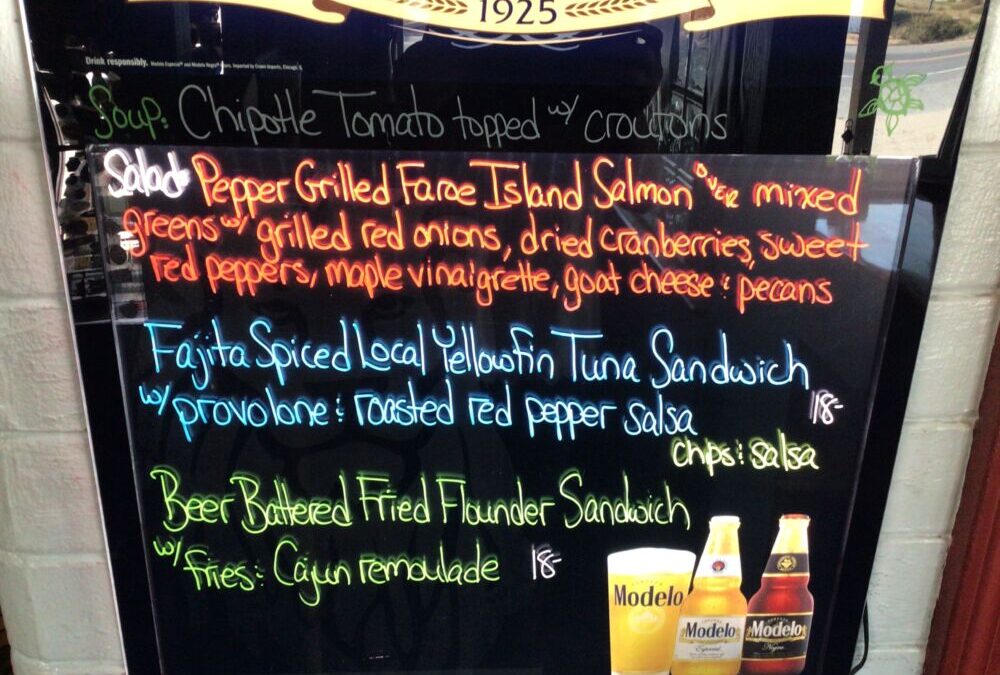 1925
Drink responsibly.
Soup: Chipotle Tomato topped w/ croutons
Salad: Pepper Grilled Faroe Island Salmon over mixed
greens w/ grilled red onions, dried cranberries, sweet
red peppers, maple vinaigrette, goat cheese & pecans
Fajita Spiced Local Yellowfin Tuna Sandwich
w/ provolone & roasted red pepper salsa 18-
chips & salsa
Beer Battered Fried Flounder Sandwich
w/ fries & Cajun remoulade 18-
Modelo
Modelo
Especial
Modelo
Negra